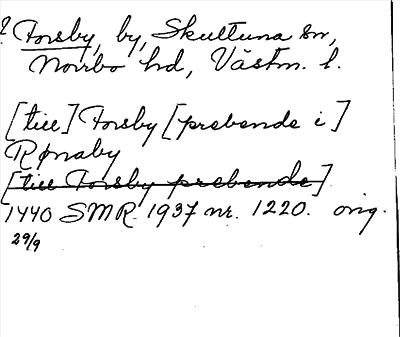 ? Forsby, by, Skultuna sn,
Norrbo hd, Västm. l.
[till] Forsby [prebende i]
Rønaby
[till Forsby prebende]
1440 SMR 1937 nr. 1220. orig.
29/9